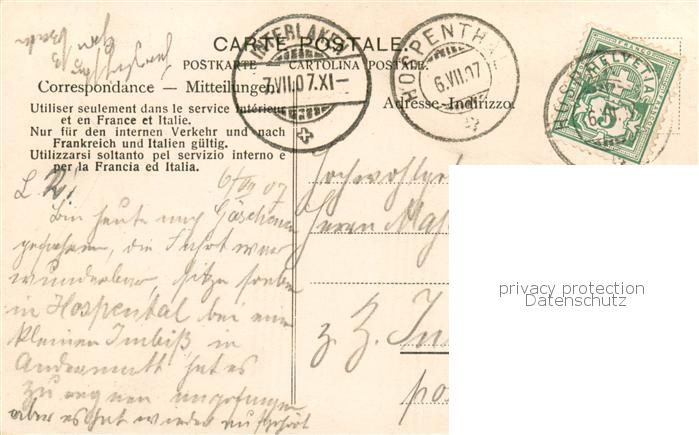 CARTE POSTALE.
POSTKARTE — CARTOLINA POSTALE.
Correspondance — Mitteilungen.
Adresse-Indirizzo.
Utiliser seulement dans le service intérieur
et en France et Italie.
Nur für den internen Verkehr und nach
Frankreich und Italien gültig.
Utilizzarsi soltanto pel servizio interno e
per la Francia ed Italia.
INTERLAKEN
7.VII.07.XI—
HOSPENTHAL
6.VII.07
FRANCO
HELVETIA
5
L. R!
6/VII 07
Bin heute nach Göschenen
gefahren, die Fahrt war
wunderbar, sitze soeben
in Hospental bei einem
kleinen Imbiß, in
Andermatt hat es
zu regnen angefangen
aber es hat wieder aufgehört
Hochwohlge
Herrn Maj
z. Z. In
po
privacy protection
Datenschutz